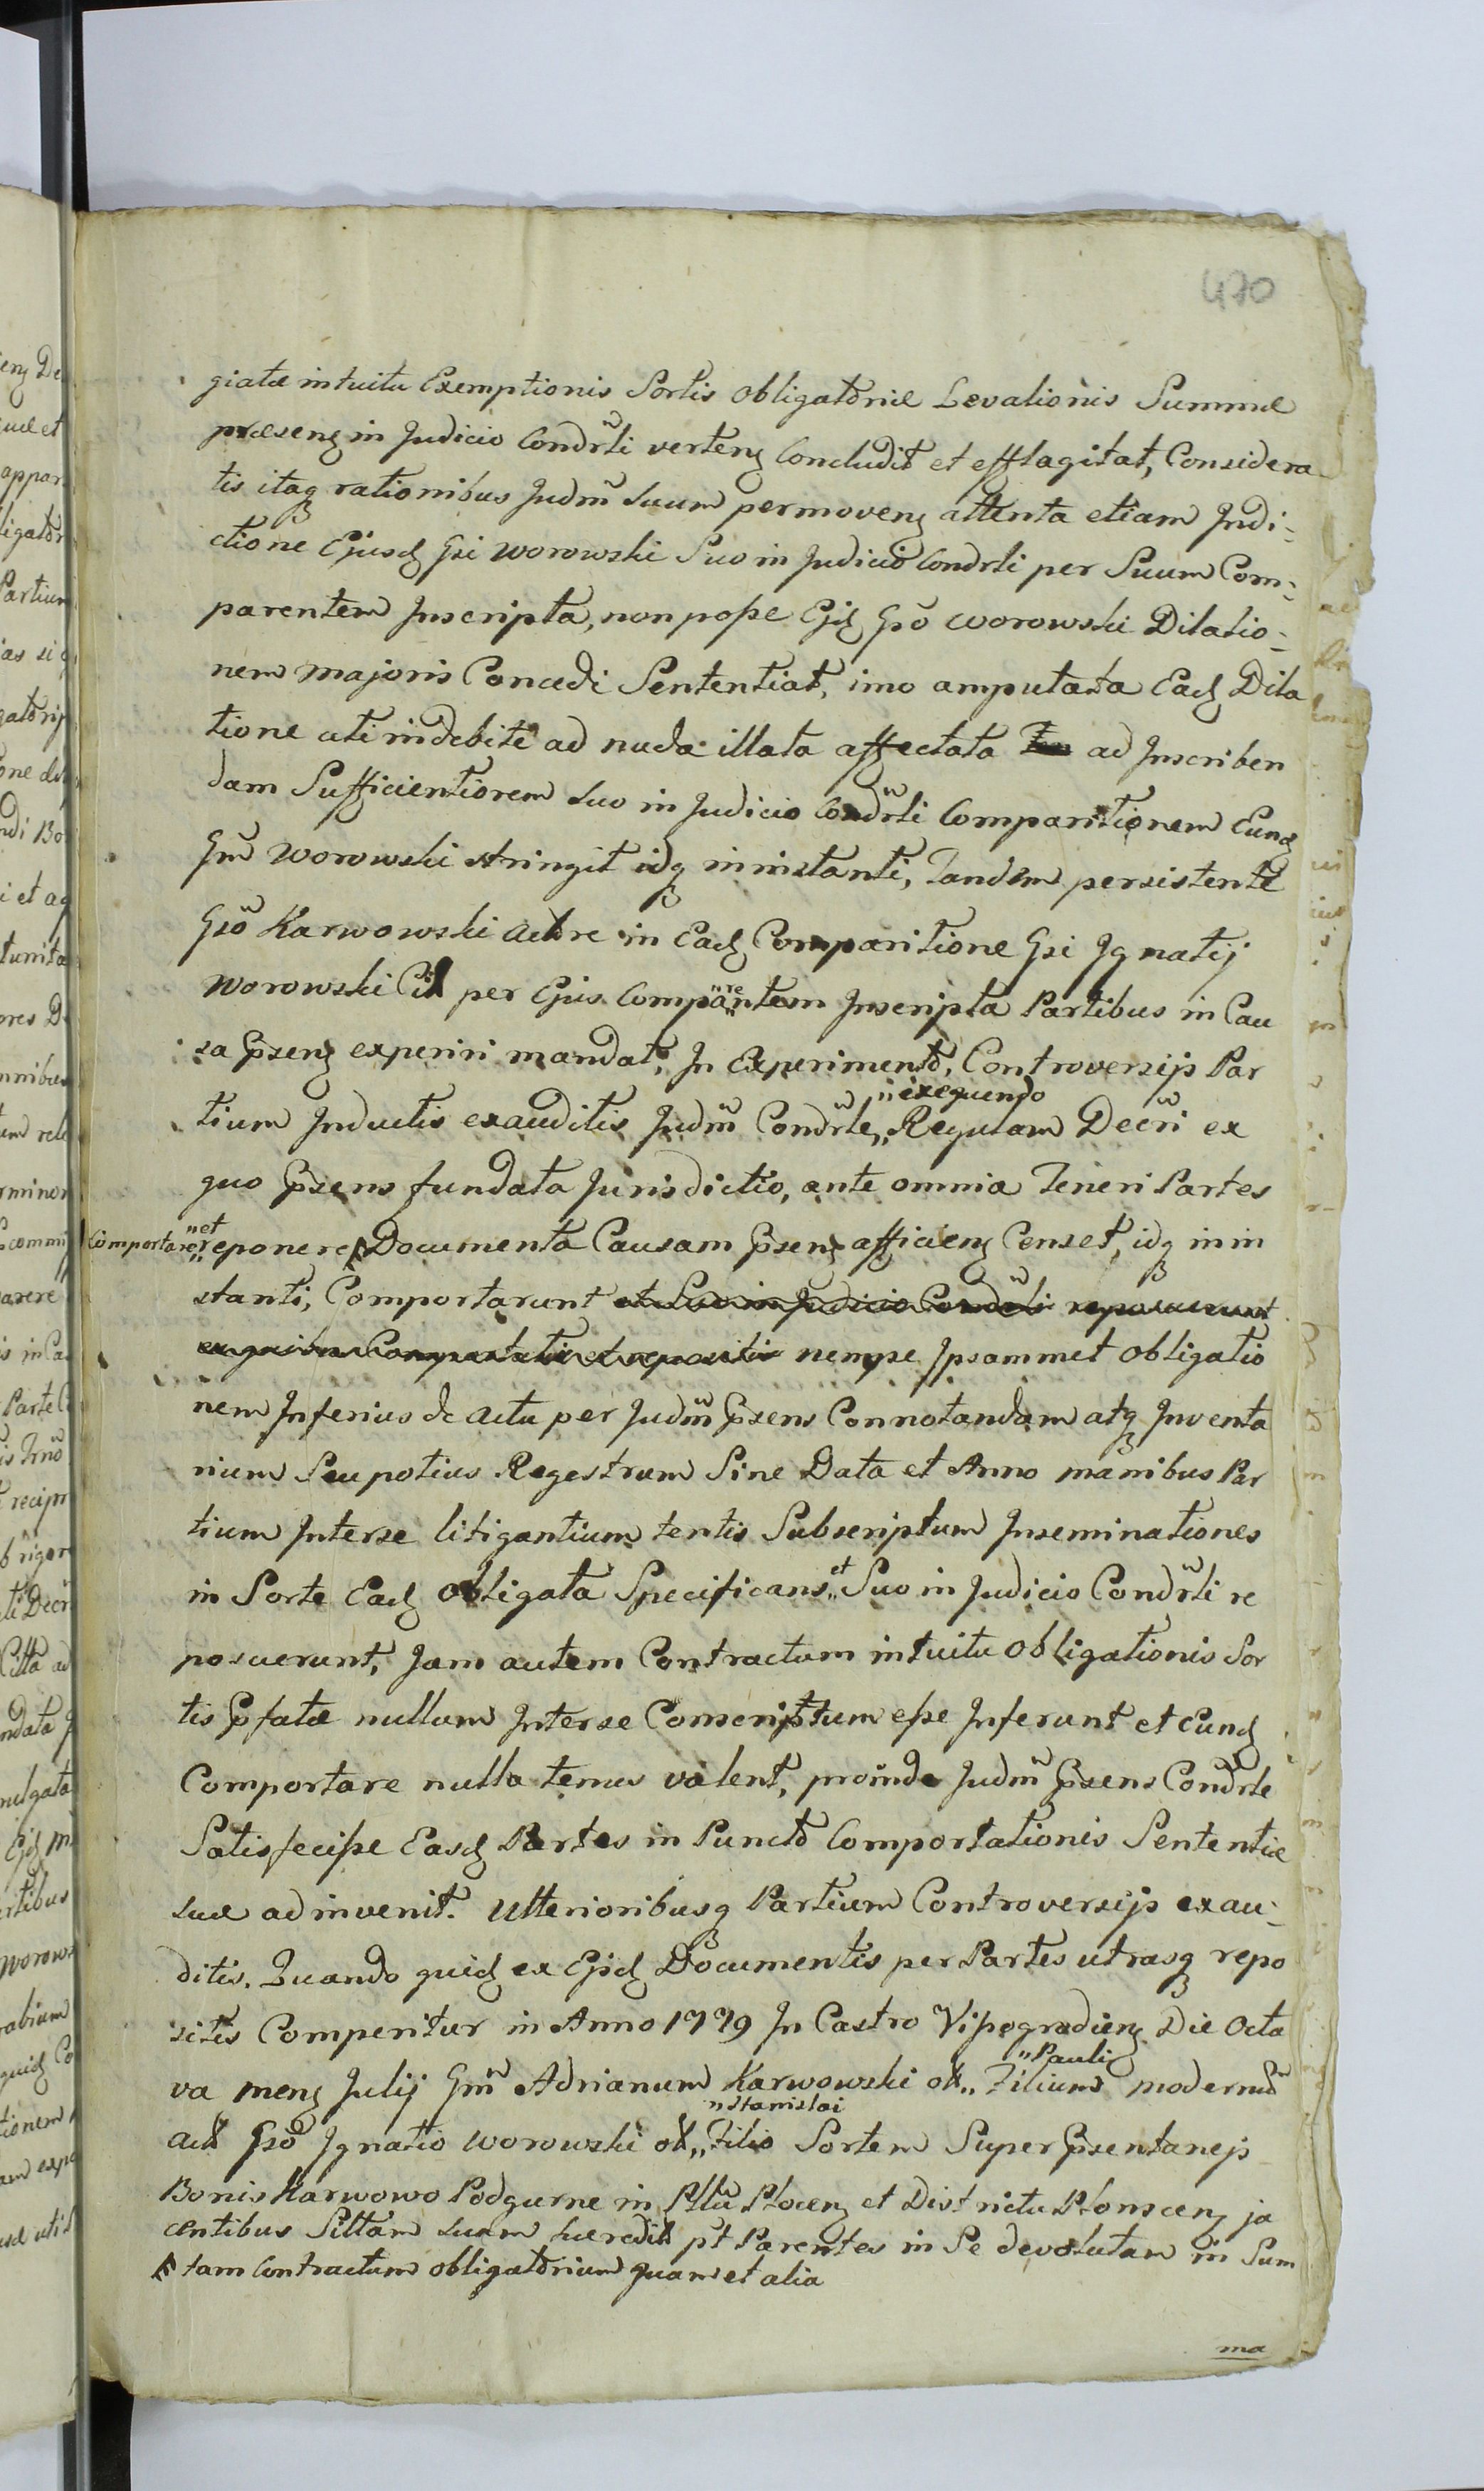 470
giatæ intuitu Exemptionis Sortis obligatoriæ Levationis Summæ
præseng in Judicio Condrli verteng Concludit et efflagitat, Considera
tis itaq rationibus Judm̃ Suum permoveng attenta etiam Indi-
ctione Ejusd Gsi Worowski Suo in Judicio Condrli per Suum Com-
parentem Inscripta, non posse Ejd Gso Worowski Dilatio-
nem majoris Concedi Sententiat, imo amputata Ead Dila
tione uti indebite ad nuda illata affectata ad Inscriben
dam Sufficientiorem Suo in Judicio Condrli Comparitionem Eund
Gm̃ Worowski stringit idq in instanti, Tandem persistente
Gso Karwowski actore in Ead Comparitione Gsi Ignatij
Worowski Cit per Ejus Comparentem Inscripta Partibus in Cau
sa Pseng experiri mandat, In Experimento, Controversijs Par
tium Inductis exauditis Judm̃ Condrle „exequendo Regulam Decri ex
quo Psens fundata Jurisdictio, ante omnia Teneri Partes
Comportare „et reponere Documenta Causam Pseng afficieng Censet, idq in in
stanti, Comportarunt et Suo in Judicio Condrli reposuerunt
ex quibus Comportatis et repositis nempe Ipsammet obligatio
nem Inferius de actu per Judm̃ Psens Connotandam atq Inventa
rium Seu potius Regestrum Sine Data et Anno manibus Par
tium Interse litigantium tentis Subscriptum Inseminationes
in Sorte Ead obligata Specificans „et Suo in Judicio Condrli re
posuerunt, Jam autem Contractum intuitu obligationis Sor
tis Pfatæ nullum Interse Conscriptum esse Inferunt et Eund
Comportare nulla tenus valent, proinde Judm̃ Psens Condrle
Satisfecisse Easd Partes in Puncto Comportationis Sententiæ
Suæ adinvenit. Ulterioribusq Partium Controversijs exau-
ditis. Quando quid ex Ejsd Documentis per Partes utrasq repo
sitis Comperitur in Anno 1779 In Castro Vissogradieng Die Octa
va meng Julij Gm̃ Adrianum Karwowski ol „Pauli Filium modernũ
act Gso Ignatio Worowski ol „Stanislai Filio Sortem Super Psentanejs
Bonis Karwowo Podgurne in Pltu Ploceng et Districtu Plonsceng ja
centibus Sittam Suam hæredit pt Parentes in Se devolutam in Sum
tam Contractum obligatorium quam et alia
ma